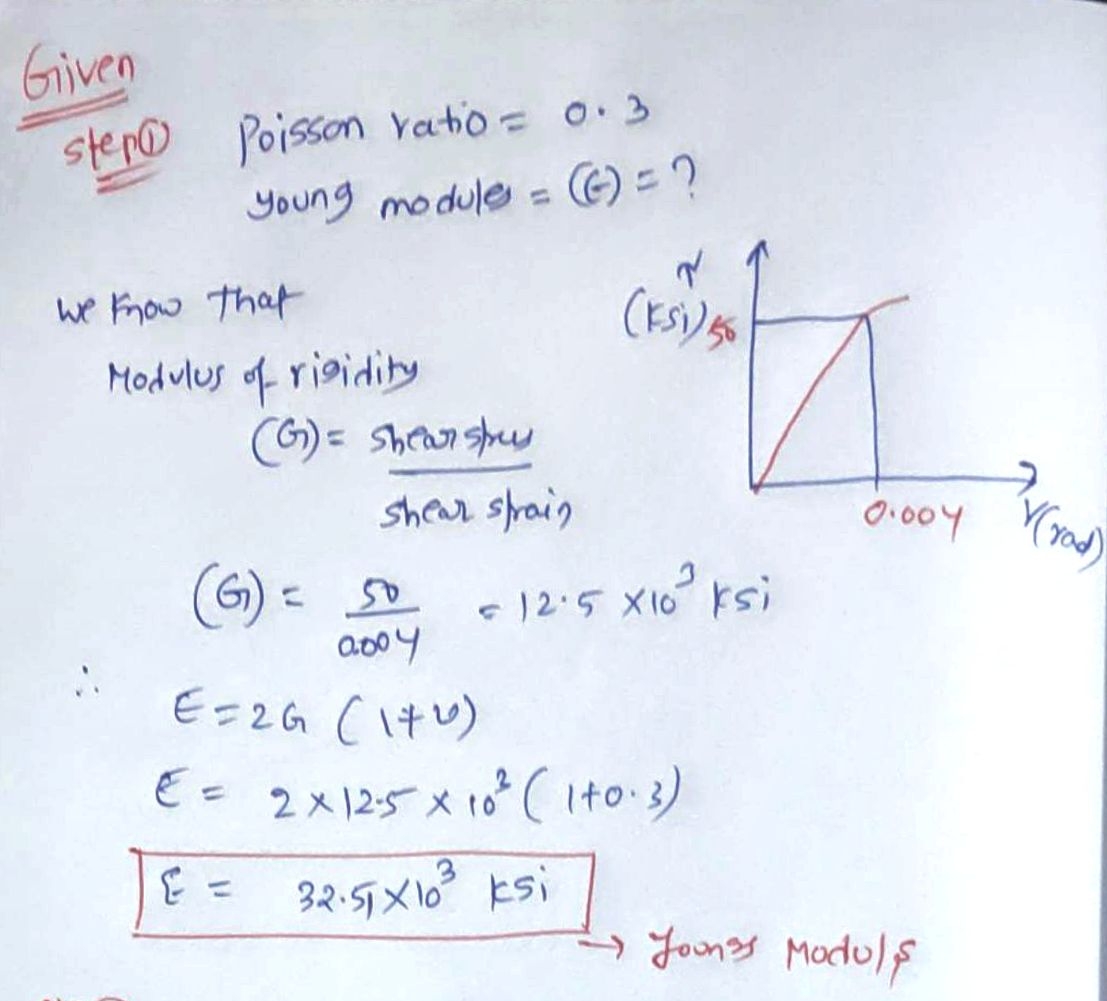 Given
step① Poisson ratio = 0.3
young modules = (E) = ?
We Know that
Modulus of rigidity
(G) = shear stress
shear strain
τ
(ksi) 50
0.004 γ(rad)
(G) = 50 / 0.004 = 12.5 × 10³ ksi
∴
E = 2G (1+υ)
E = 2 × 12.5 × 10³ (1+0.3)
E = 32.5 × 10³ ksi
→ Youngs Moduls